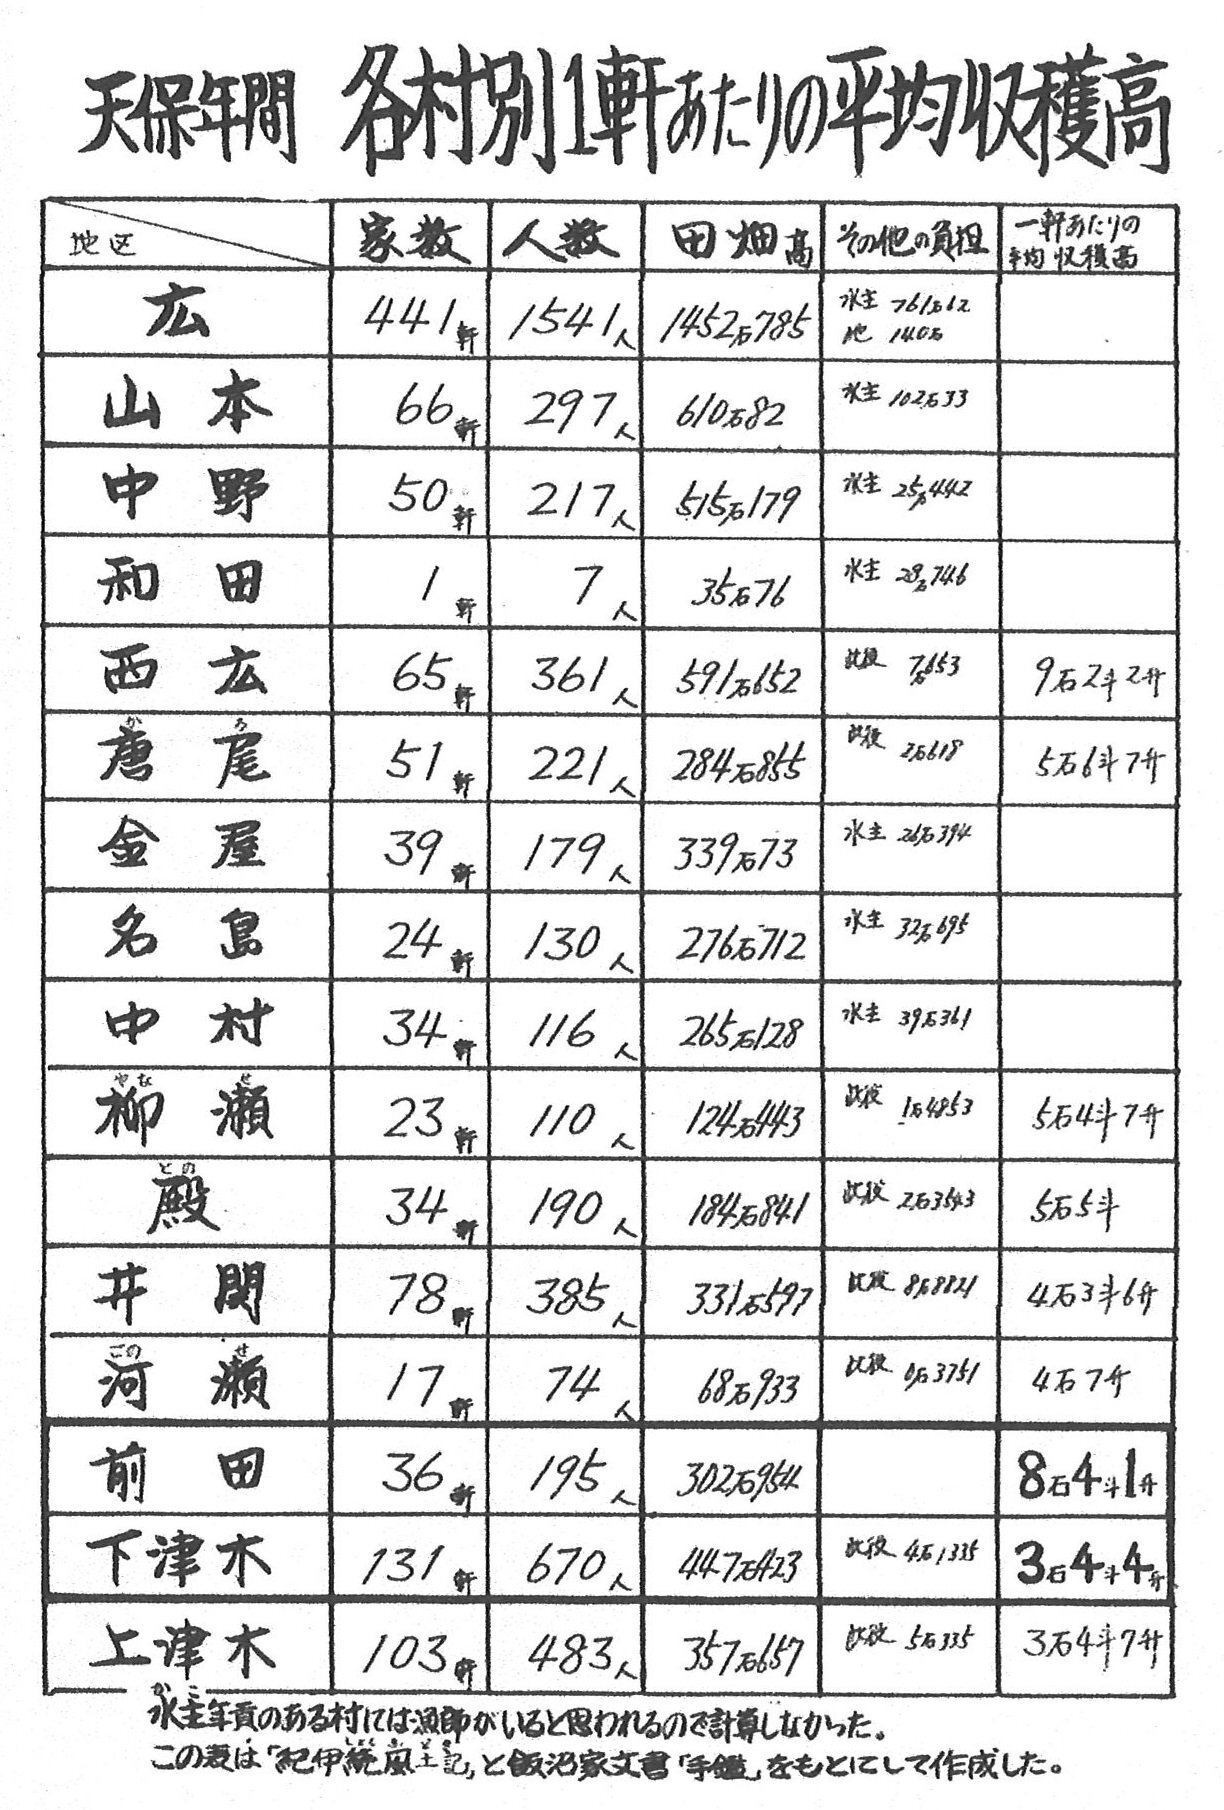 天保年間 各村別1軒あたりの平均収穫高
地区 家数 人数 田畑高 その他の負担 一軒あたりの平均収穫高
広 441軒 1541人 1452石785 水主 761石62
池 140石
山本 66軒 297人 610石82 水主 102石33
中野 50軒 217人 515石179 水主 25石442
和田 1軒 7人 35石76 水主 28石746
西広 65軒 361人 591石652 此役 7石653 9石2斗2升
か ろ
唐尾 51軒 221人 284石855 此役 2石618 5石6斗7升
金屋 39軒 179人 339石73 水主 26石394
名島 24軒 130人 276石712 水主 32石695
中村 34軒 116人 265石128 水主 39石361
やな せ
柳瀬 23軒 110人 124石443 此役 1石4853 5石4斗7升
との
殿 34軒 190人 184石841 此役 2石3543 5石5斗
井関 78軒 385人 331石597 此役 8石8821 4石3斗6升
ごの せ
河瀬 17軒 74人 68石933 此役 0石3751 4石7升
前田 36軒 195人 302石954 8石4斗1升
下津木 131軒 670人 447石423 此役 4石1335 3石4斗4升
上津木 103軒 483人 357石657 此役 5石335 3石4斗7升
かこ
水主年貢のある村には漁師がいると思われるので計算しなかった。
この表は「紀伊続風土記」と飯沼家文書「手鑑」をもとにして作成した。